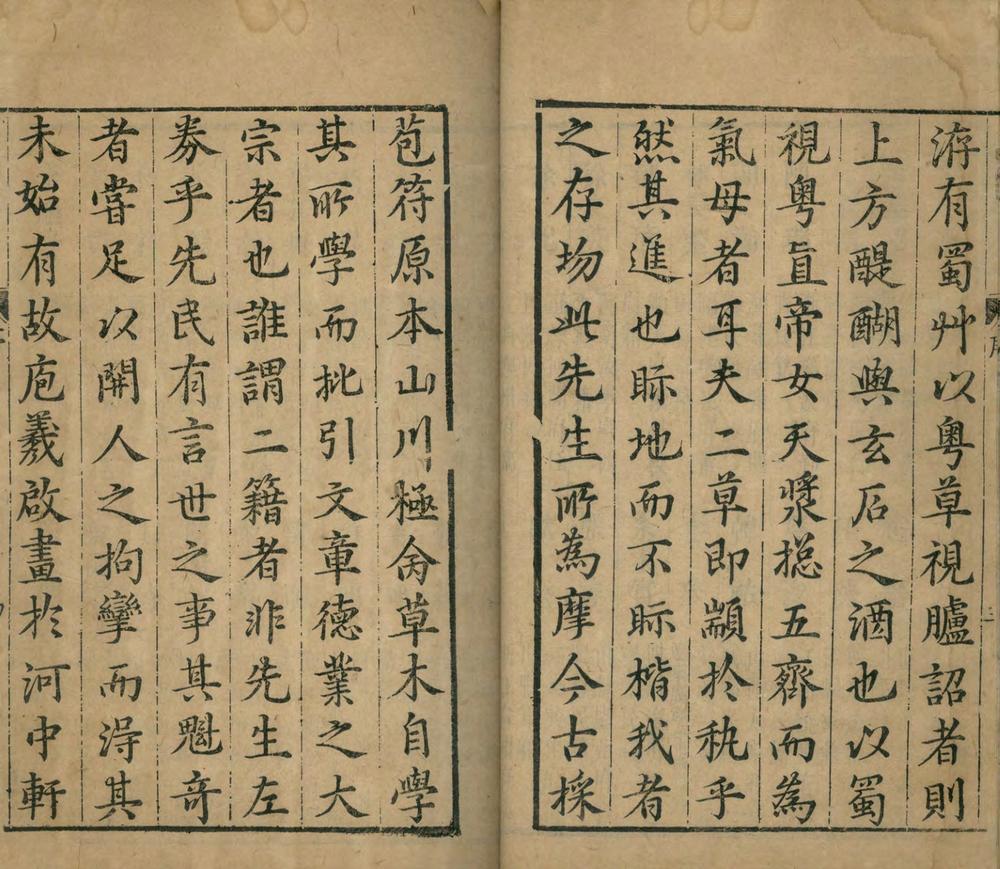 洊有蜀艸以粵草視臚詔者則
上方醍醐與玄𠩄之酒也以蜀
視粵亘帝女天漿摠五齊而為
氣母者耳夫二草即顓於秇乎
然其進也眎地而不眎楷我者
之存埸此先生所為摩今古採
苞符原本山川極侖草木自學
其所學而批引文章德業之大
宗者也誰謂二籍者非先生左
券乎先民有言世之事其魁竒
者嘗足以開人之拘攣而淂其
未始有故庖羲啟畫於河中軒